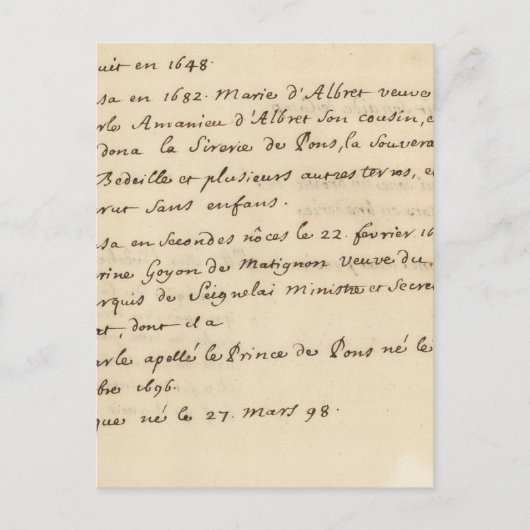 uit en 1648.
sa en 1682. Marie d'Albret veuve
rle Amanieu d'Albret son cousin, e
dona la Sirerie de Pons, la Souvera
Bedeille et plusieurs autres terres, e
rut sans enfans.
sa en secondes nôces le 22. fevrier 16
rine Goyon de Matignon veuve du
rquis de Seignelai Ministre et Secre
at, dont il a
arle apellé le Prince de Pons né le
bre 1696.
que né le 27. Mars 98.